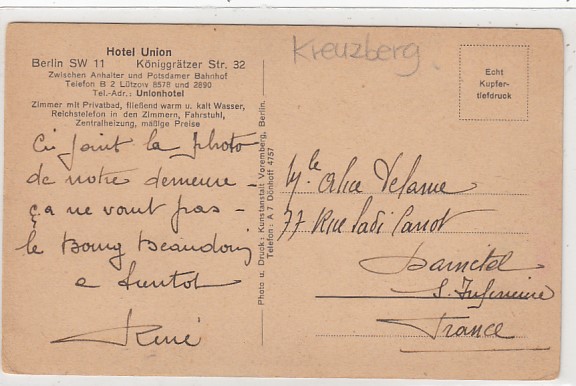 Hotel Union
Berlin SW 11 Königgrätzer Str. 32
Zwischen Anhalter und Potsdamer Bahnhof
Telefon B 2 Lützow 8578 und 2890
Tel.-Adr.: Unionhotel
Zimmer mit Privatbad, fließend warm u. kalt Wasser,
Reichstelefon in den Zimmern, Fahrstuhl,
Zentralheizung, mäßige Preise
Kreuzberg
Echt
Kupfer-
tiefdruck
Ci joint la photo
de notre demeure -
ça ne vaut pas -
le Bourg Beaudouin
a bientot
René
Photo u. Druck: Kunstanstalt Voremberg, Berlin.
Telefon: A 7 Dönhoff 4757
Mlle Alice Delarue
77 Rue Sadi Carnot
Darnétal
S. Inferieure
France